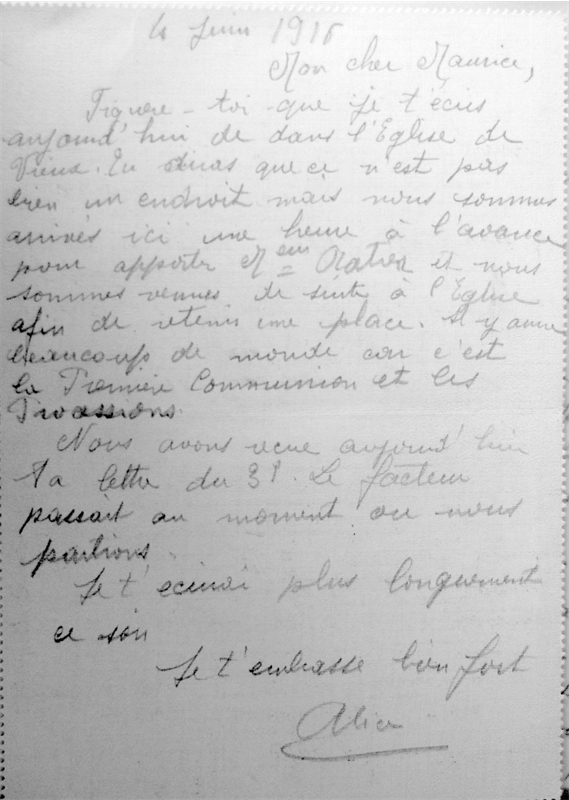 4 Juin 1916
Mon cher Maurice,
Figure-toi que je t'écris
aujourd'hui de dans l'Eglise de
Vieux. Tu diras que ce n'est pas
bien un endroit mais nous sommes
arrivés ici une heure à l'avance
pour apporter Mem et nous
sommes venues de suite à l'Eglise
afin de retenir une place. Il y aura
beaucoup de monde car c'est
la Première Communion et les
Processions.
Nous avons reçue aujourd'hui
ta lettre du 31. Le facteur
passait au moment ou nous
partions.
Je t'ecrirai plus longuement
ce soir
Je t'embrasse bien fort
Alice